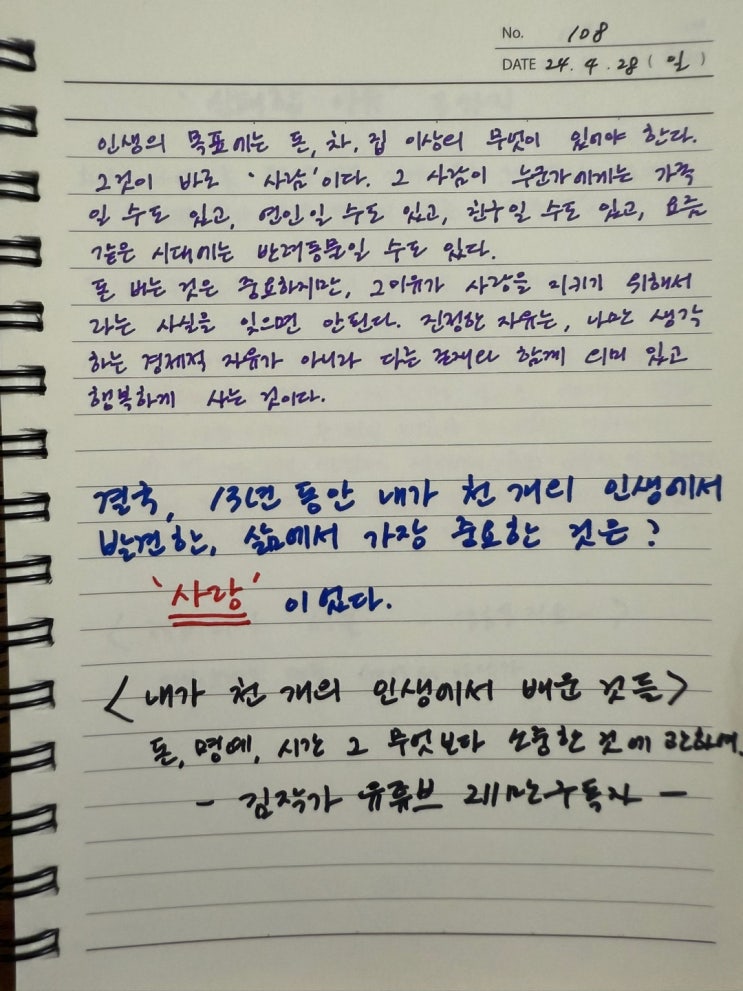 No. 108
DATE 24. 4. 28 (일)
인생의 목표에는 돈, 차, 집 이상의 무엇이 있어야 한다.
그것이 바로 '사람'이다. 그 사람이 누군가에게는 가족
일 수도 있고, 연인일 수도 있고, 친구일 수도 있고, 요즘
같은 시대에는 반려동물일 수도 있다.
돈 버는 것은 중요하지만, 그 이유가 사랑을 지키기 위해서
라는 사실을 잊으면 안된다. 진정한 자유는, 나만 생각
하는 경제적 자유가 아니라 다른 존재와 함께 의미 있고
행복하게 사는 것이다.
결국, 13년 동안 내가 천 개의 인생에서
발견한, 삶에서 가장 중요한 것은?
'사랑' 이었다.
<내가 천 개의 인생에서 배운 것들>
돈, 명예, 시간 그 무엇보다 소중한 것에 관하여.
- 김작가 유튜브 2백만구독자 -